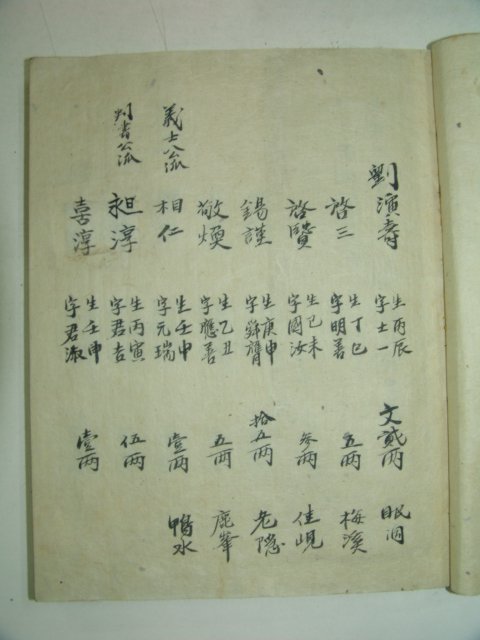 劉演壽 生丙辰 字士一 文貳兩 眠洞
啓三 生丁巳 字明善 五兩 梅溪
啓贊 生己未 字國汝 參兩 佳峴
錫謹 生庚申 字舜膺 拾五兩 老隱
敬煥 生乙丑 字應善 五兩 鹿峯
義士公派 相仁 生壬申 字元瑞 壹兩 鴨水
判書公派 昶淳 生丙寅 字君吉 伍兩
喜淳 生壬申 字君淑 壹兩